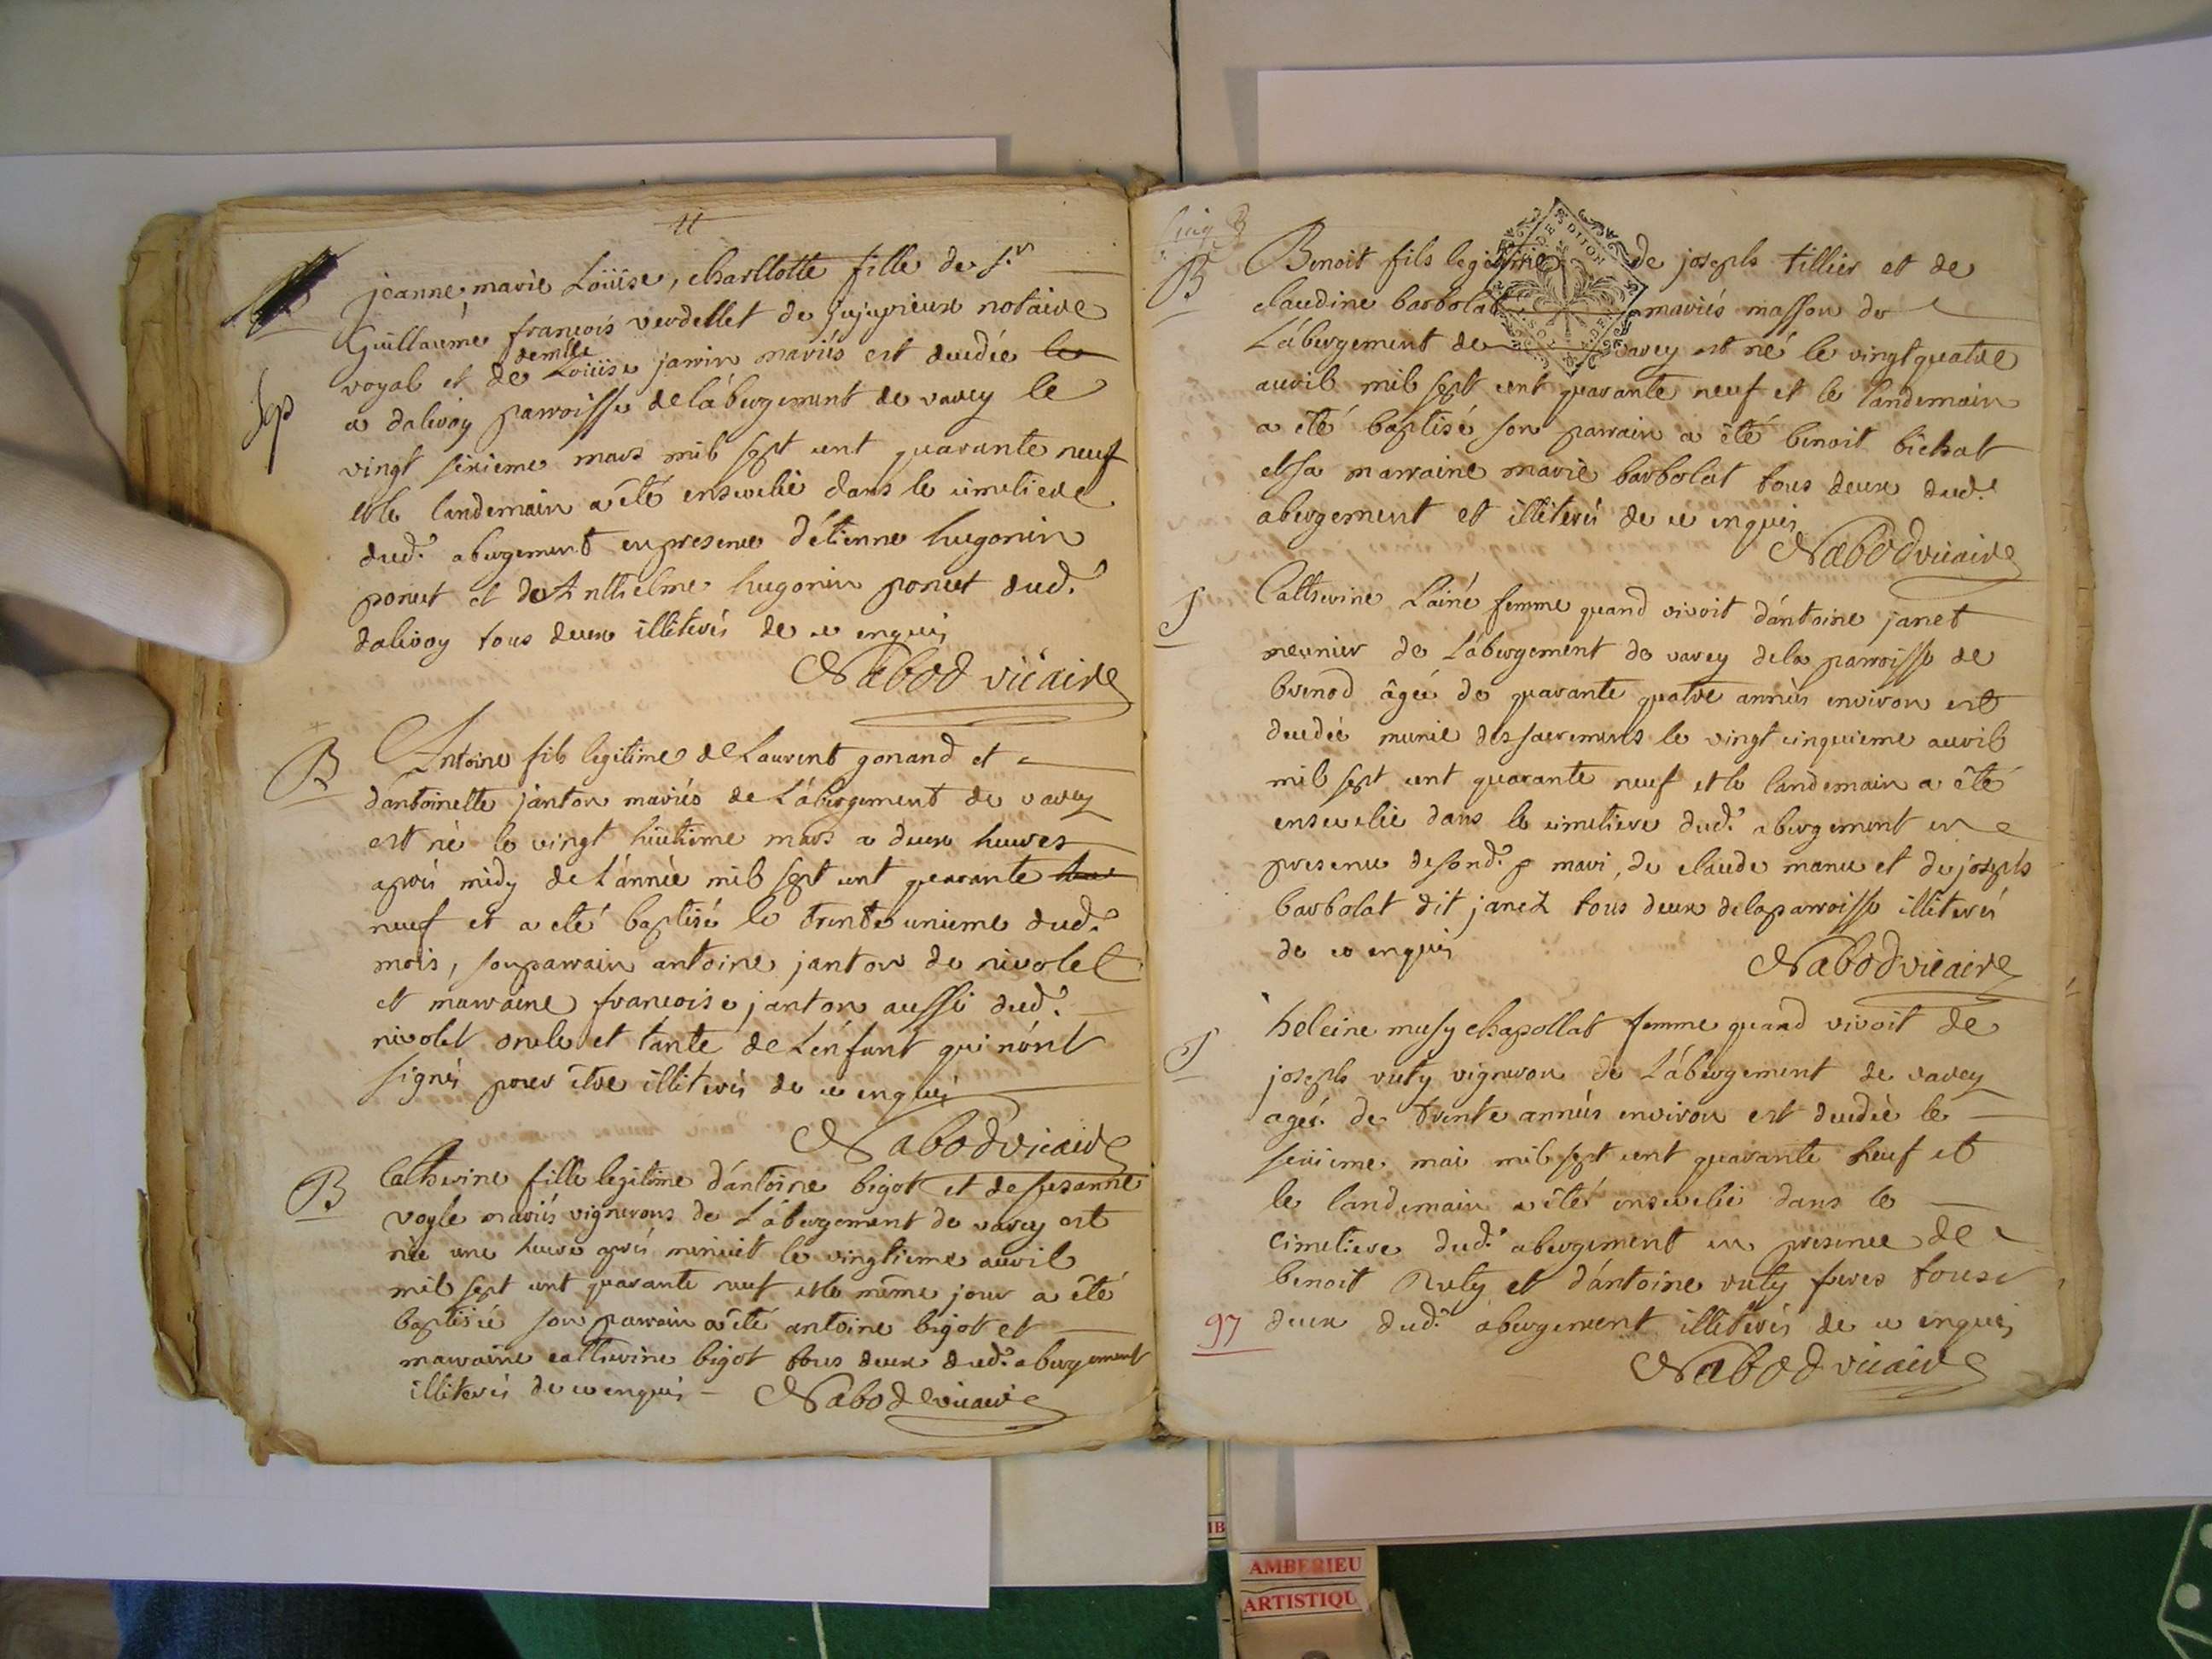 jeanne marie Loüise, charllotte fille de s.r
Guillaume françois verdellet de jujurieux notaire
royal et de demlle Loüise janin mariés est decedée le
Sep
a dalivoy parroisse de lábergement de varey le
vingt sixieme mars mil sept cent quarante neuf
et le landemain a été ensevelie dans le cimetiere
dud.t abergement en presence détienne hugonin
poncet et de Anthelme hugonin poncet dud.t
dalivoy tous deux illiterés de ce enquis
Nabod vicaire
B
Antoine fils legitime de Laurent gonand et
dántoinette janton mariés de Lábergement de varey
est né le vingt huitieme mars a deux heures
aprés midy de Lánnée mil sept cent quarante
neuf et a eté baptisé le trente unieme dud.t
mois, son parrain antoine janton de nivolet
et marraine francoise janton aussi dud.t
nivolet oncle et tante de Lénfant qui nónt
signés pour être illiterés de ce enquis
Nabod vicaire
B
Catherine fille legitime dántoine bigot et de susanne
vogle mariés vignerons de Lábergement de varey est
née une heure aprés minuit le vingtieme avril
mil sept cent quarante neuf et le même jour a été
baptisée son parrain a été antoine bigot et
marraine catherine bigot tous deux dud.t abergement
illiterés de ce enquis - Nabod vicaire
B
Benoit fils legitime de joseph tillier et de
claudine barbolat mariés masson de
Lábergement de varey est né le vingtquatre
avril mil sept cent quarante neuf et le landemain
a été baptisé son parrain a été benoit bichat
et sa marraine marie barbolat tous deux dud.t
abergement et illiterés de ce enquis
Nabod vicaire
S
Catherine Lainé femme quand vivoit dántoine janet
meunier de Lábergement de varey dela parroisse de
brenod âgée de quarante quatre années environ est
decedée munie des sacremens le vingt cinquieme avril
mil sept cent quarante neuf et le landemain a été
ensevelie dans le cimetiere dud.t abergement en
presence de sond.t mari, de claude manu et de joseph
barbolat dit janet tous deux dela parroisse illiterés
de ce enquis
Nabod vicaire
S
heleine musy chapollat femme quand vivoit de
joseph ruty vigneron de Lábergement de varey
agée de trente années environ est decedée le
seixieme mai mil sept cent quarante neuf et
le landemain a été ensevelie dans le
cimetiere dud.t abergement en presence de
benoit Ruty et dántoine ruty freres tous
97
deux dud.t abergement illiterés de ce enquis
Nabod vicaire
AMBERIEU
ARTISTIQU